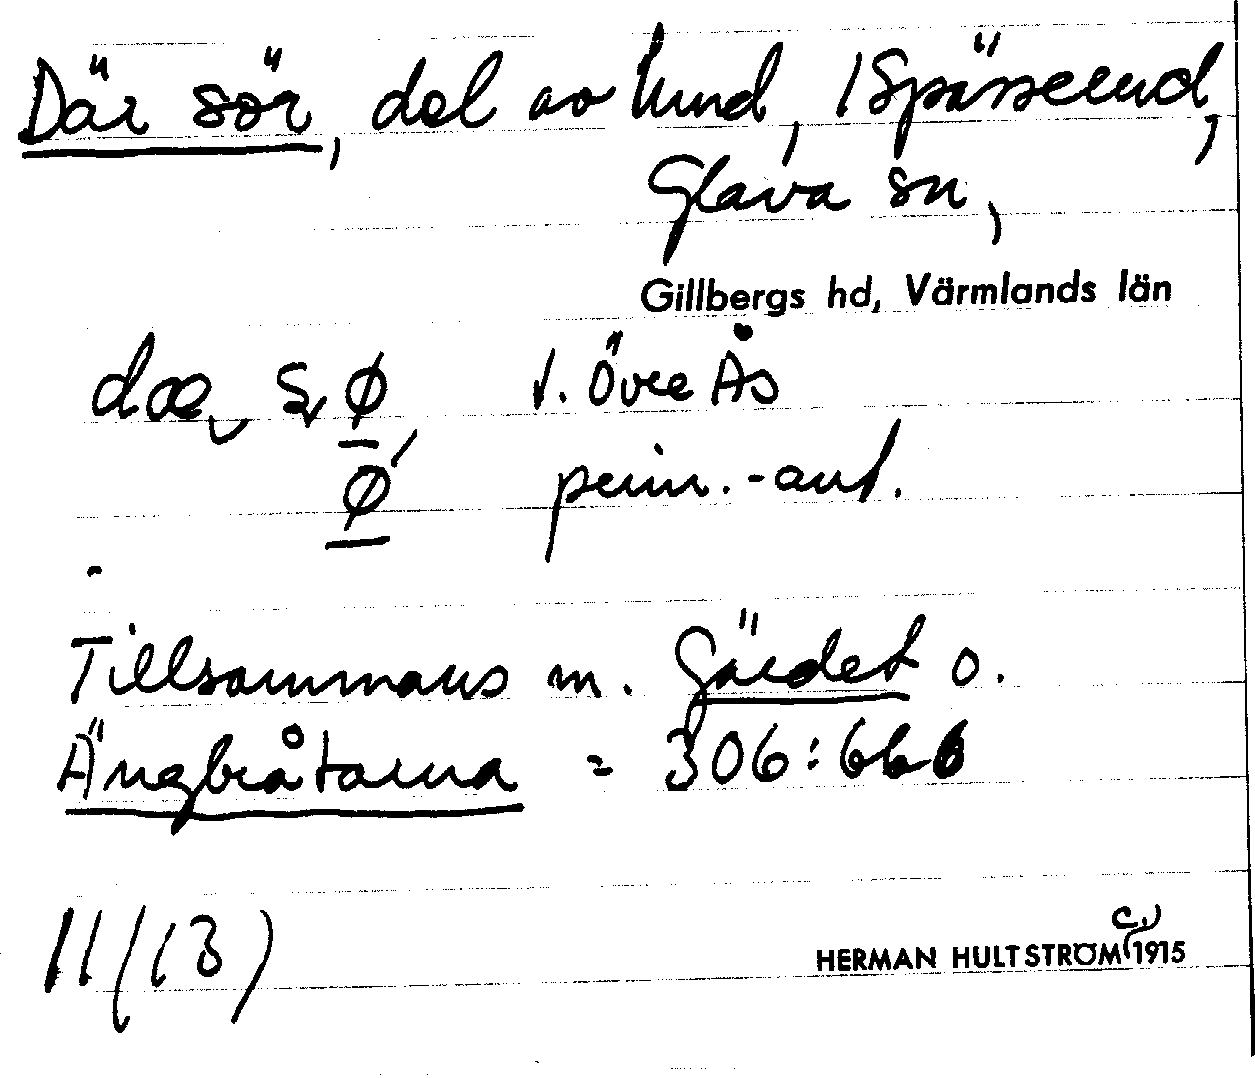 Där sör, del av lund, 1 Spässerud,
Glava sn,
Gillbergs hd, Värmlands län
dæ s ø v. Övre Ås
ø prim.-ant.
Tillsammans m. Gärdet o.
Ängbråtarna = 306:666
11/(13)
HERMAN HULTSTRÖM c. 1915